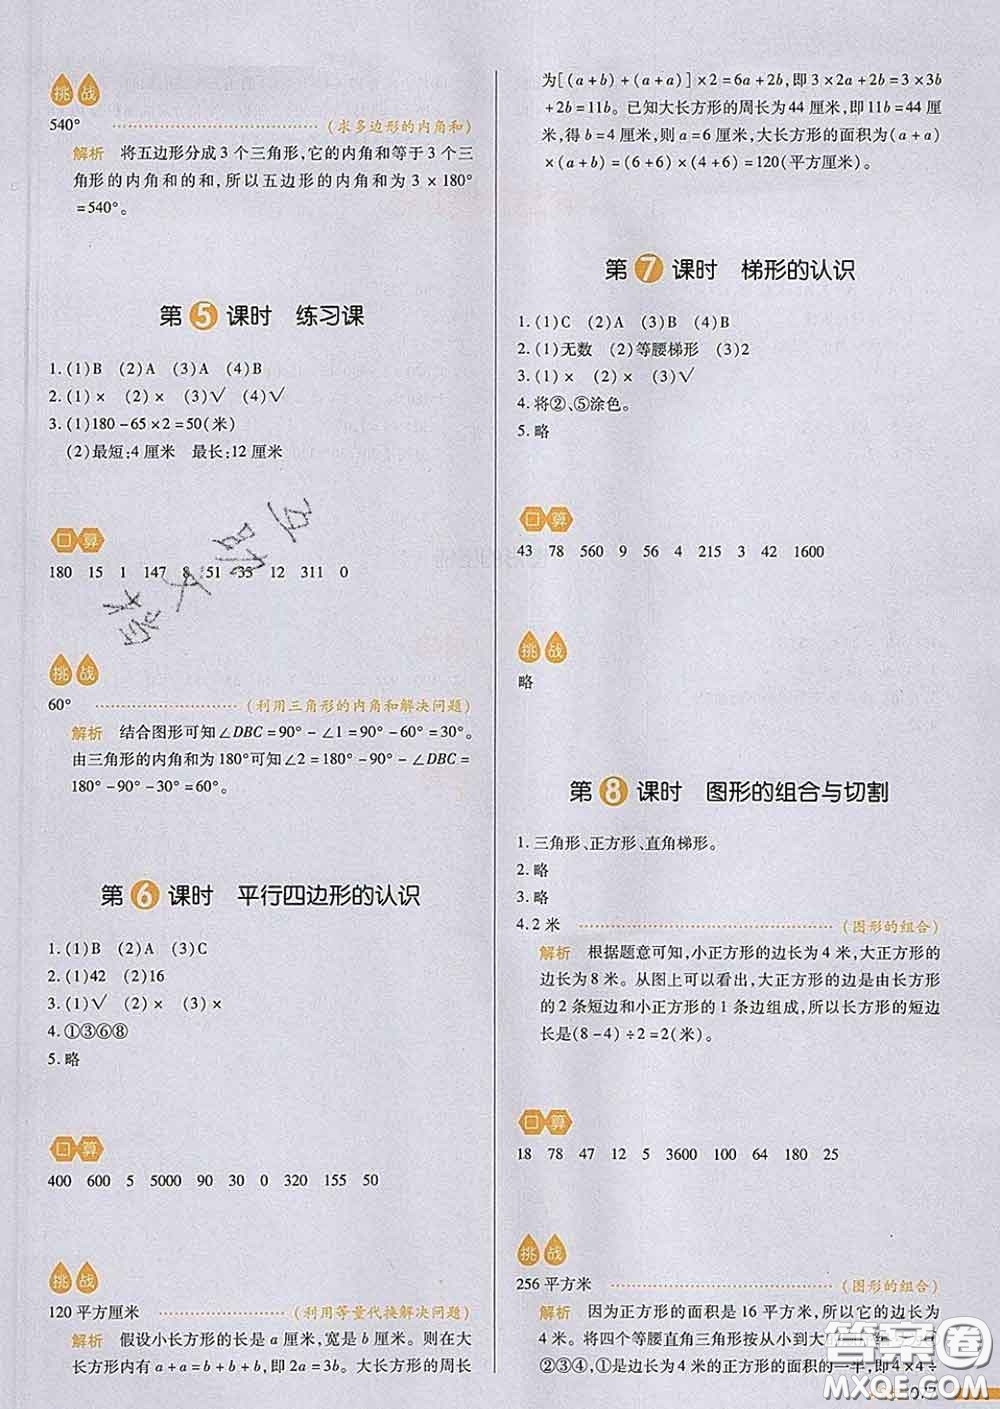 挑战
540° (求多边形的内角和)
解析 将五边形分成3个三角形,它的内角和等于3个三
角形的内角和的和,所以五边形的内角和为3×180°
=540°。
第5课时 练习课
1. (1)B (2)A (3)A (4)B
2. (1)× (2)× (3)√ (4)√
3. (1)180-65×2=50(米)
(2)最短:4厘米 最长:12厘米
口算
180 15 1 147 8 51 33 12 311 0
挑战
60° (利用三角形的内角和解决问题)
解析 结合图形可知∠DBC=90°-∠1=90°-60°=30°。
由三角形的内角和为180°可知∠2=180°-90°-∠DBC=
180°-90°-30°=60°。
第6课时 平行四边形的认识
1. (1)B (2)A (3)C
2. (1)42 (2)16
3. (1)√ (2)× (3)×
4. ①③⑥⑧
5. 略
口算
400 600 5 5000 90 30 0 320 155 50
挑战
120平方厘米 (利用等量代换解决问题)
解析 假设小长方形的长是a厘米,宽是b厘米。则在大
长方形内有a+a=b+b+b,即2a=3b。大长方形的周长
为[(a+b)+(a+a)]×2=6a+2b,即3×2a+2b=3×3b
+2b=11b。已知大长方形的周长为44厘米,即11b=44厘
米,得b=4厘米,则a=6厘米,大长方形的面积为(a+a)
×(a+b)=(6+6)×(6+4)=120(平方厘米)。
第7课时 梯形的认识
1. (1)C (2)A (3)B (4)B
2. (1)无数 (2)等腰梯形 (3)2
3. (1)× (2)× (3)√
4. 将②、⑤涂色。
5. 略
口算
43 78 560 9 56 4 215 3 42 1600
挑战
略
第8课时 图形的组合与切割
1. 三角形、正方形、直角梯形。
2. 略
3. 略
4. 2米 (图形的组合)
解析 根据题意可知,小正方形的边长为4米,大正方形的
边长为8米。从图上可以看出,大正方形的边是由长方形
的2条短边和小正方形的1条边组成,所以长方形的短边
长是(8-4)÷2=2(米)。
口算
18 78 47 12 5 3600 100 64 180 25
挑战
256平方米 (图形的组合)
解析 因为正方形的面积是16平方米,所以它的边长为
4米。将四个等腰直角三角形按从小到大
②③④,①是边长为4米的正方形的面积的一半,即4×4÷
答案圈
MXQE.COM